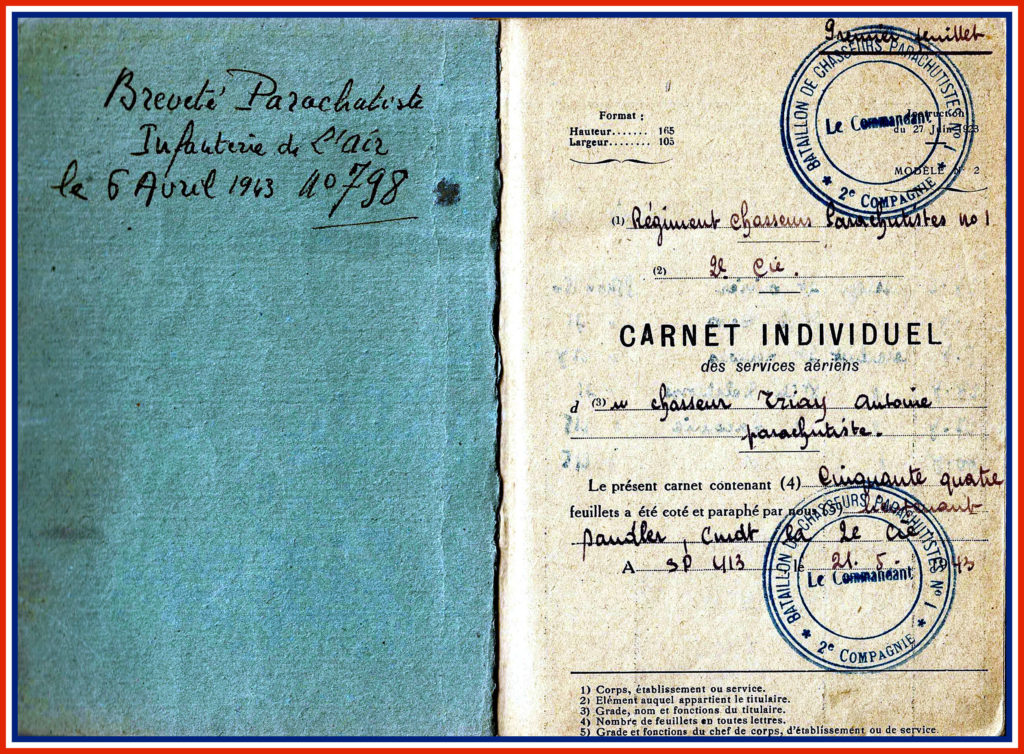 Breveté Parachutiste
Infanterie de L'air
le 6 Avril 1943 no 798
Premier feuillet
BATAILLON DE CHASSEURS PARACHUTISTES No 1
Le Commandant
* 2e COMPAGNIE *
Format :
Hauteur....... 165
Largeur........ 105
Instruction
du 27 Juin 1923
MODÈLE N° 2
(1) Régiment Chasseurs Parachutistes no 1
(2) 2e Cie.
CARNET INDIVIDUEL
des services aériens
d (3) u chasseur Triay Antoine
parachutiste.
Le présent carnet contenant (4) Cinquante quatre
feuillets a été coté et paraphé par nous (5) lieutenant
Cmdt la 2e Cie
A SP 413 le 21. 5. 1943
BATAILLON DE CHASSEURS PARACHUTISTES No 1
Le Commandant
* 2e COMPAGNIE *
1) Corps, établissement ou service.
2) Elément auquel appartient le titulaire.
3) Grade, nom et fonctions du titulaire.
4) Nombre de feuillets en toutes lettres.
5) Grade et fonctions du chef de corps, d'établissement ou de service.